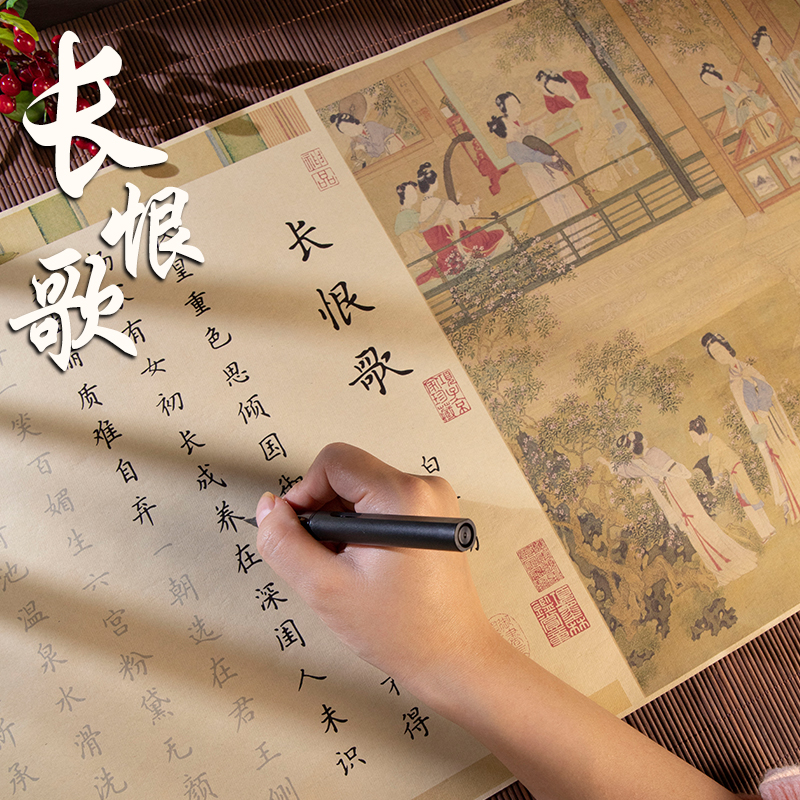 长恨歌
神品
长恨歌
白
皇重色思倾国御 得
有女初长成 养在深闺人未识
丽质难自弃 一朝选在君王侧
一笑百媚生 六宫粉黛无颜
池 温泉水滑洗
承